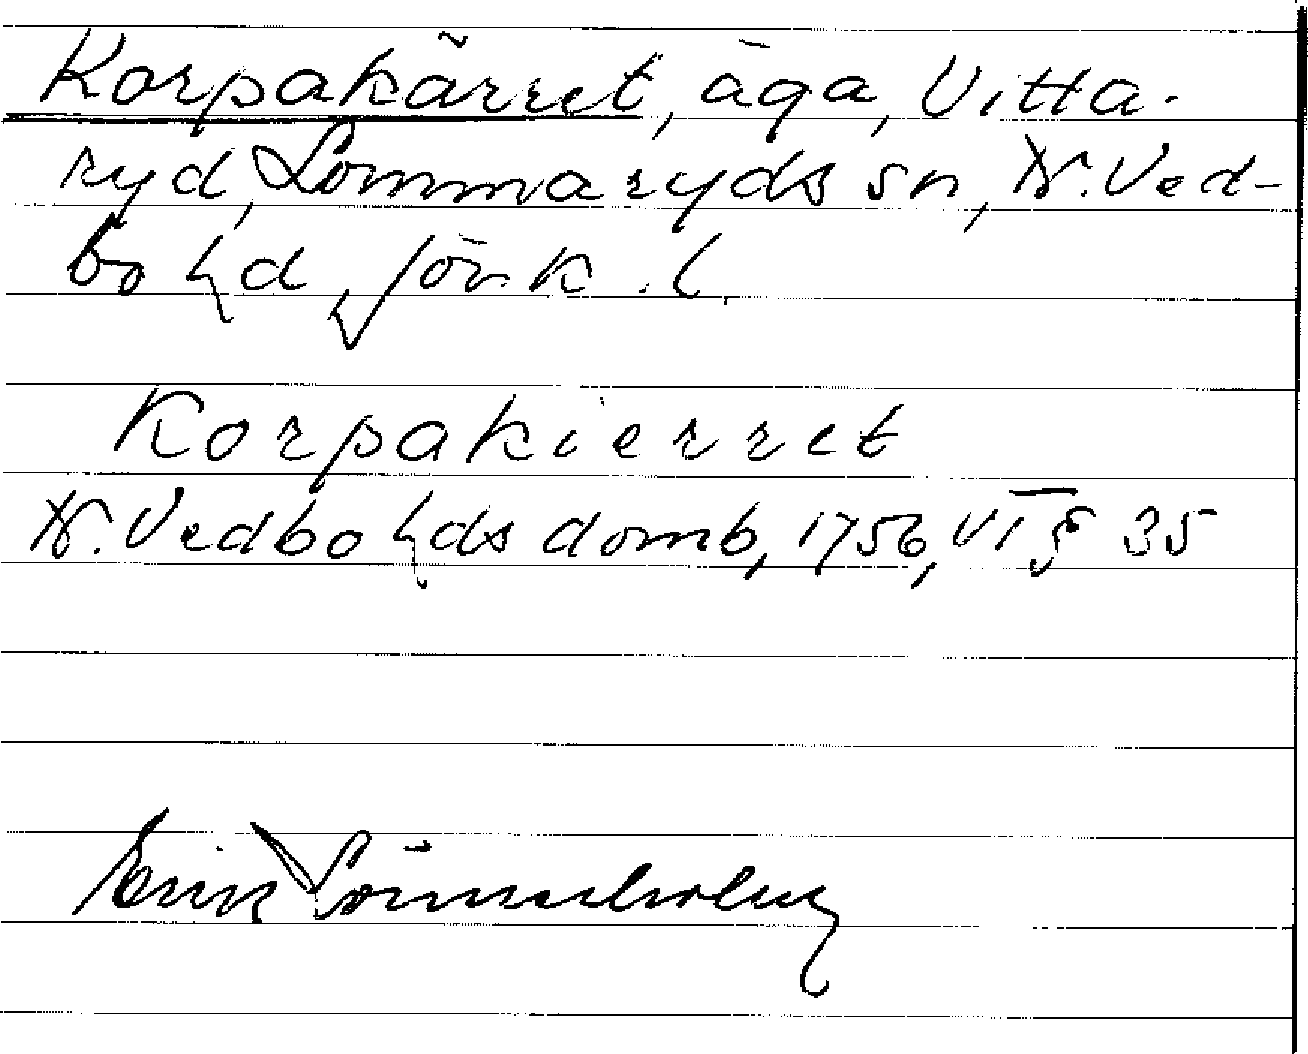 Korpakärret, äga, Vitta-
ryd, Lommaryds sn, N. Ved-
bo hd, Jönk. l
Korpakierret
N. Vedbo hds domb, 1756, VI § 35
Erik